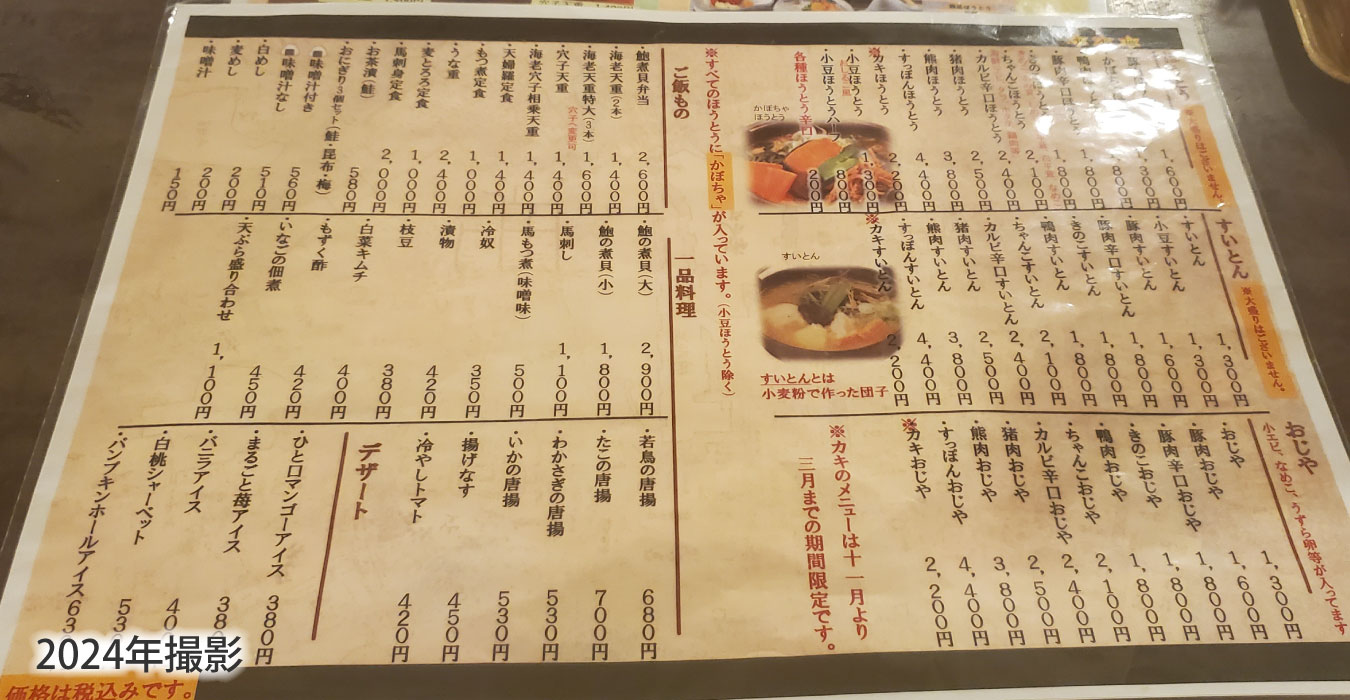 ※大盛りはございません。
・カルビ辛口ほうとう
・猪肉ほうとう 2,500円
・熊肉ほうとう 3,800円
・すっぽんほうとう 4,400円
※カキほうとう 2,200円
・小豆ほうとう 1,300円
・小豆ほうとうハーフ 800円
各種ほうとう辛口 200円
かぼちゃ
ほうとう
すいとん
※大盛りはございません。
・すいとん 1,300円
・小豆すいとん 1,300円
・豚肉すいとん 1,600円
・豚肉辛口すいとん 1,800円
・きのこすいとん 1,800円
・鴨肉すいとん 1,800円
・ちゃんこすいとん 2,100円
・カルビ辛口すいとん 2,400円
・猪肉すいとん 2,500円
・熊肉すいとん 3,800円
・すっぽんすいとん 4,400円
※カキすいとん 2,200円
すいとん
すいとんとは
小麦粉で作った団子
おじや
小エビ、なめこ、うずら卵等が入ってます
・おじや 1,300円
・豚肉おじや 1,600円
・豚肉辛口おじや 1,800円
・きのこおじや 1,800円
・鴨肉おじや 1,800円
・ちゃんこおじや 2,100円
・カルビ辛口おじや 2,400円
・猪肉おじや 2,500円
・熊肉おじや 3,800円
・すっぽんおじや 4,400円
※カキおじや 2,200円
※カキのメニューは十一月より
三月までの期間限定です。
※すべてのほうとうに「かぼちゃ」が入っています。(小豆ほうとう除く)
ご飯もの
・鮑煮貝弁当 2,600円
・海老天重(2本) 1,400円
・海老天重特大(3本) 1,600円
穴子へ変更可
・穴子天重 1,400円
・海老穴子相乗天重 1,400円
・天婦羅定食 1,400円
・もつ煮定食 1,000円
・うな重 2,400円
・麦とろろ定食 1,000円
・馬刺身定食 2,000円
・お茶漬(鮭) 580円
・おにぎり3個セット(鮭・昆布・梅)
味噌汁付き 560円
味噌汁なし 510円
・白めし 200円
・麦めし 200円
・味噌汁 150円
一品料理
・鮑の煮貝(大) 2,900円
・鮑の煮貝(小) 1,800円
・馬刺し 1,100円
・馬もつ煮(味噌味) 500円
・冷奴 350円
・漬物 420円
・枝豆 380円
・白菜キムチ 400円
・もずく酢 420円
・いなごの佃煮 450円
・天ぷら盛り合わせ 1,100円
・若鳥の唐揚 680円
・たこの唐揚 700円
・わかさぎの唐揚 530円
・いかの唐揚 530円
・揚げなす 450円
・冷やしトマト 420円
デザート
・ひと口マンゴーアイス 380円
・まるごと苺アイス
・バニラアイス
・白桃シャーベット
・パンプキンホールアイス
2024年撮影
価格は税込みです。